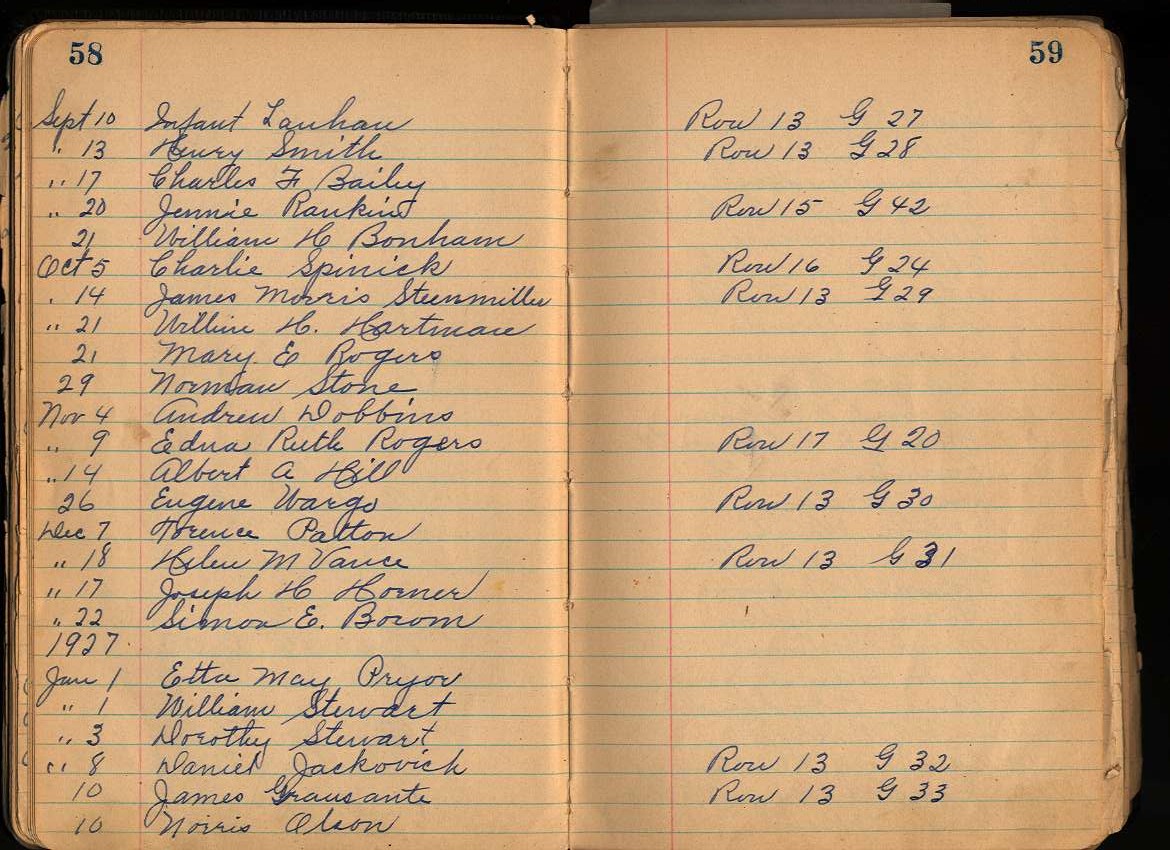 58 59
Sept 10 Infant Lanham Row 13 G 27
" 13 Henry Smith Row 13 G 28
" 17 Charles F Bailey
" 20 Jennie Rankins Row 15 G 42
21 William H Bonham
Oct 5 Charlie Spinick Row 16 G 24
" 14 James Morris Steenmiller Row 13 G 29
" 21 H. Hartman
21 Mary E Rogers
29 Norman Stone
Nov 4 Andrew Dobbins
" 9 Edna Ruth Rogers Row 17 G 20
" 14 Albert A Hill
26 Eugene Wargo Row 13 G 30
Dec 7 Patton
" 18 Helen M Vance Row 13 G 31
" 17 Joseph H Horner
" 22 E.
1927
Jan 1 Etta May Pryor
" 1 William Stewart
" 3 Dorothy Stewart
" 8 Daniel Jackovich Row 13 G 32
10 James Grausante Row 13 G 33
10 Norris Olson